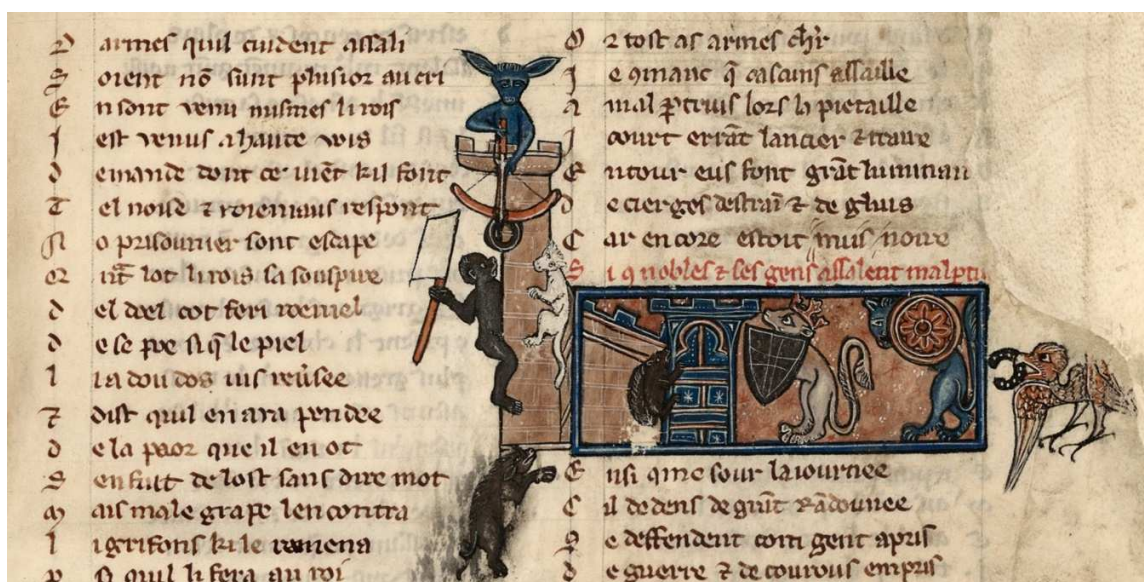 D armes quil cuident assali
S oient nō sunt plusior au cri
E n sont venu meismes li rois
J est venus a haute vois
d emande dont ce viēt kil font
T el noise & roieniaus respont
o prisounier sont escape
q̄nt lot li rois sa souspire
d el doel cot feri roeniel
d e se poe si q̄ le piel
l i a dou dos ius reūsee
& dist quil en ara pendee
d e la paor que il en ot
S en fuit de lost sans dire mot
m ais male grape lencontra
l i grifons ki le ramena
P si quil li fera au roi
O r tost as armes
J e ɔmant q̄ cascuns assaille
a mal ptruis lors la pietaille
J court errāt lancier & traire
E ntour eus font grāt luminari
D e cierges destraī & de gluis
C ar encore estoit mie noire
S i ɔ nobles & ses gens assalent malptu
E nsi ɔme sour la iournee
C il dedens de grāt rādounee
S e deffendent com gent apris
d e guerre & de courous empris